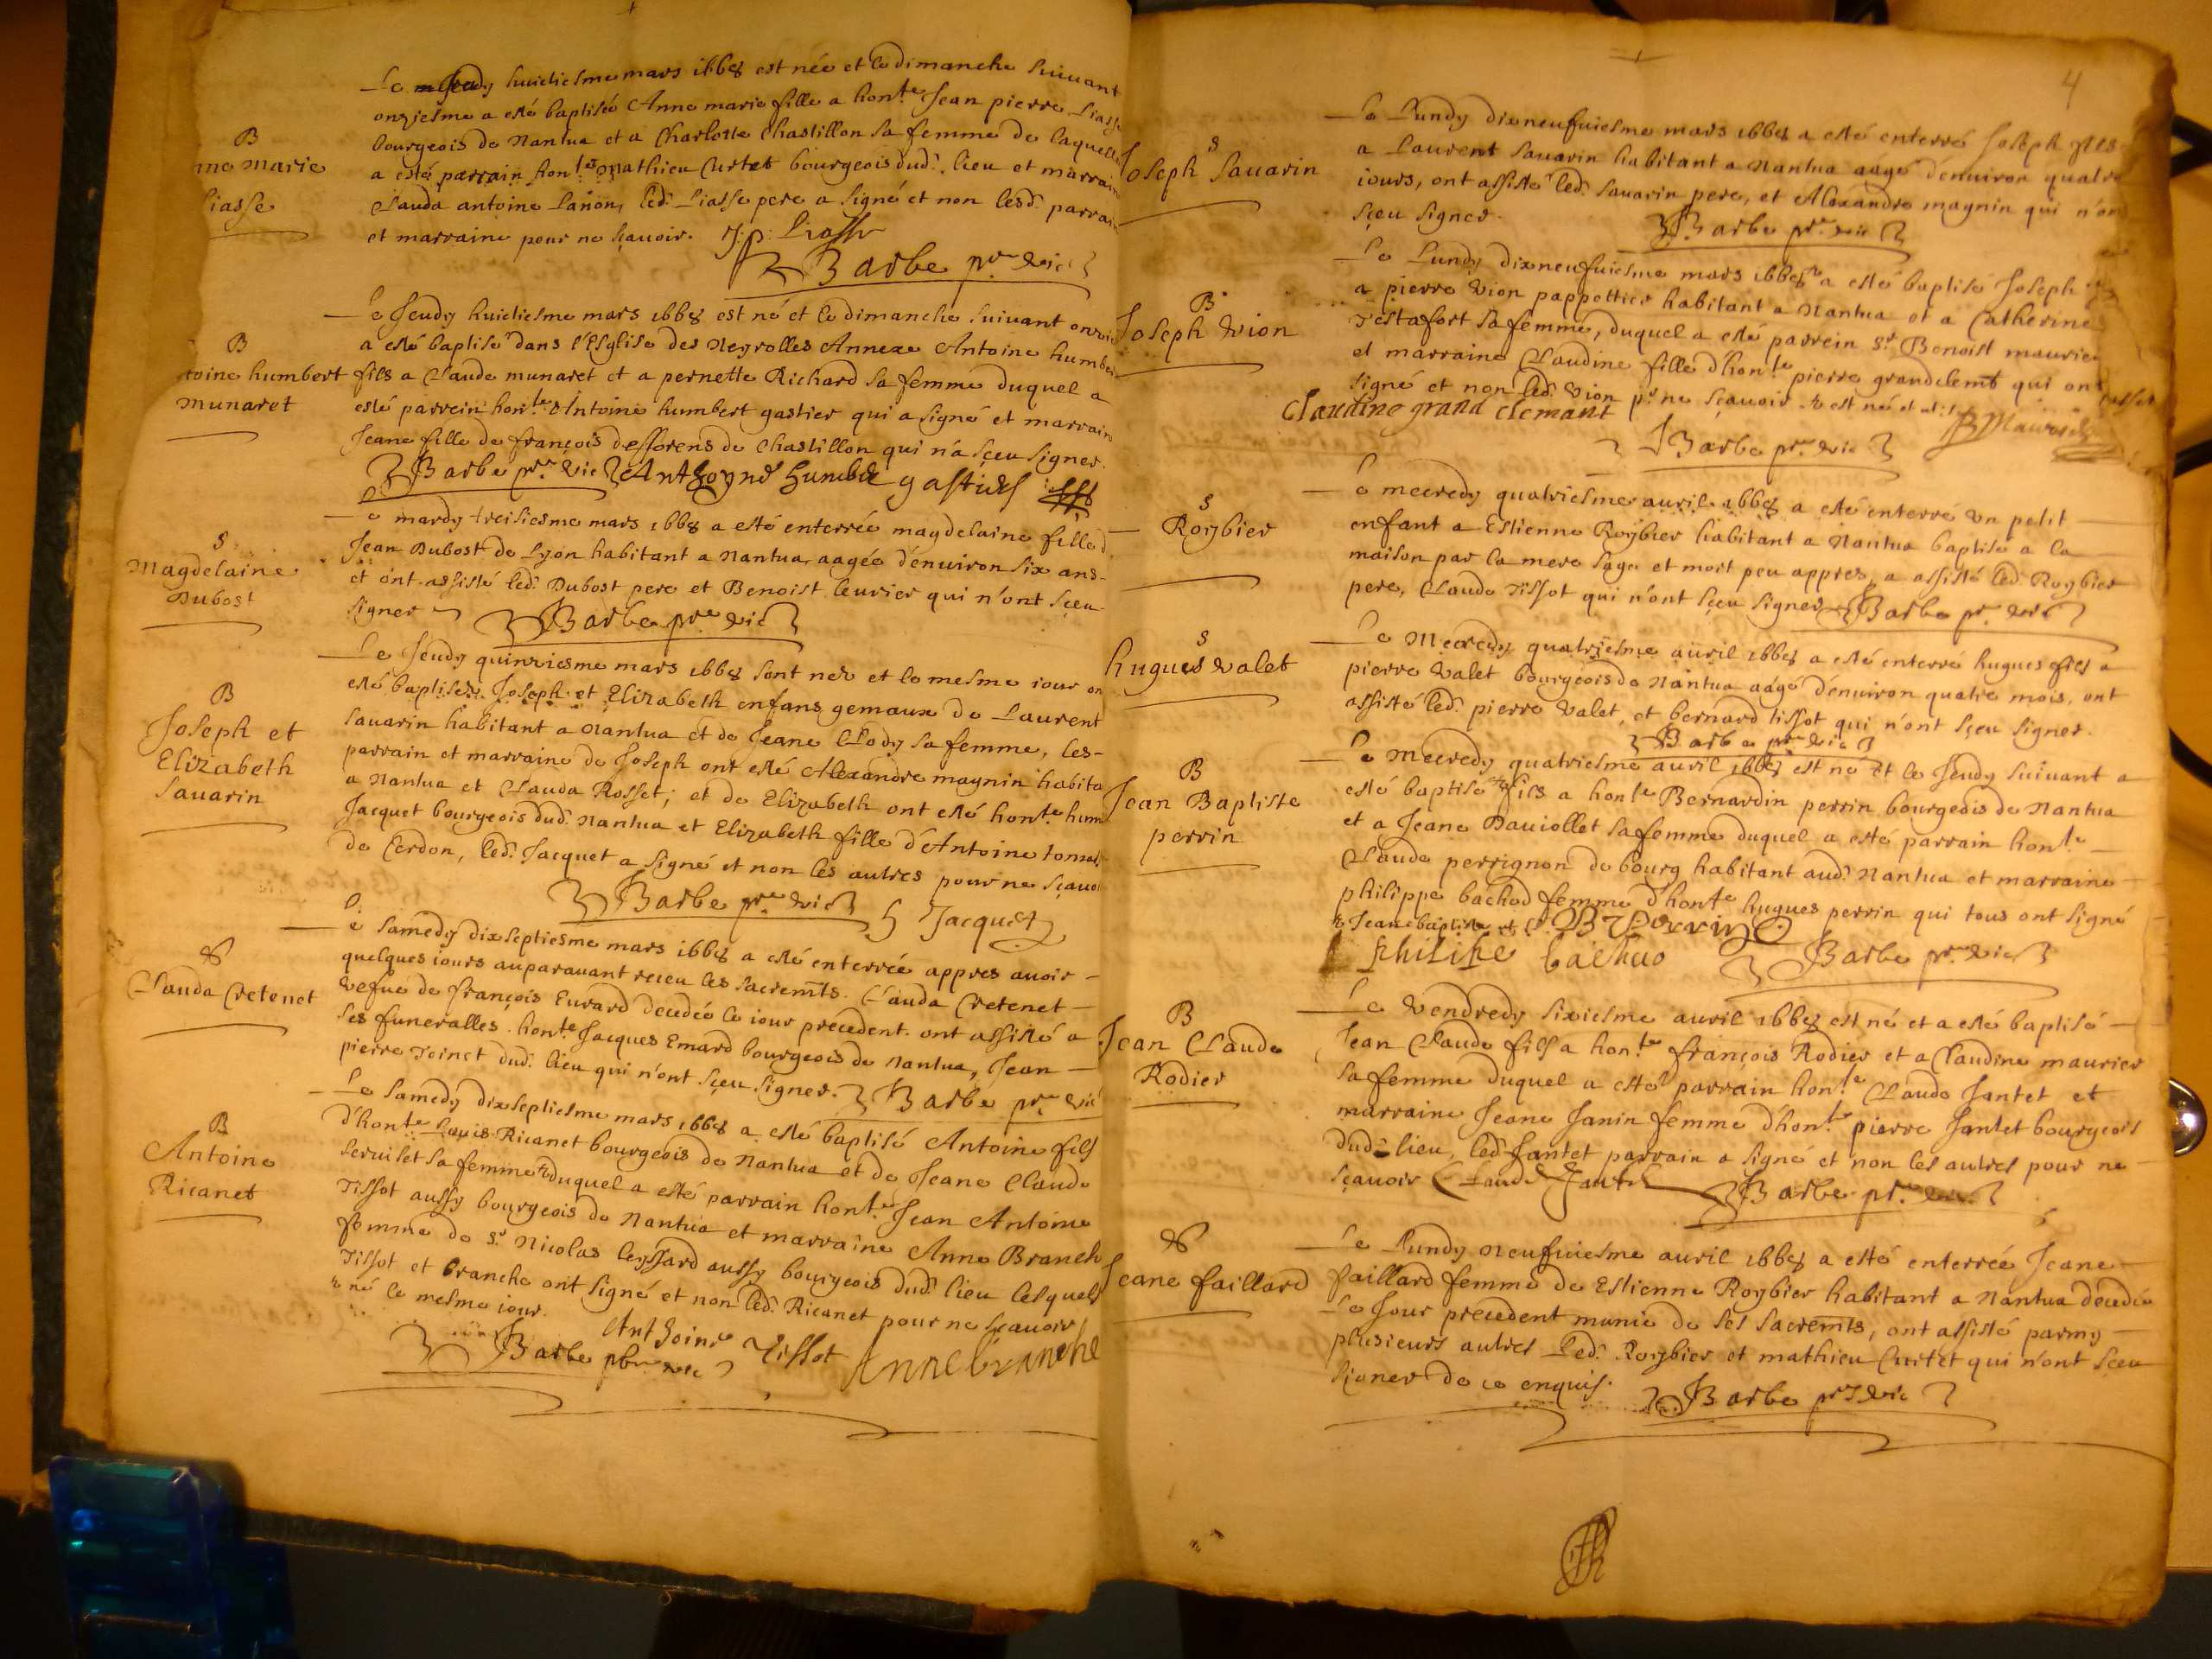 B
Anne Marie
Liasse
Le Jeudy huictiesme mars 1668 est née et le dimanche suiuant
onziesme a esté baptisée Anne marie fille a hon.te Jean pierre Liasse
bourgeois de Nantua et a Charlotte Chastillon sa femme de laquelle
a esté parrain hon.te mathieu Curtet bourgeois dud. lieu et marraine
Clauda antoine Lanon, led. Liasse pere a signé et non lesd. parrain
et marraine pour ne sçauoir. J. p. Liasse
Barbe pre vic
B
toine humbert
munaret
Le Jeudy huictiesme mars 1668 est né et le dimanche suiuant
a esté baptisé dans l'Esglise des Neyrolles Annexe Antoine humbert
fils a Claude munaret et a pernette Richard sa femme duquel a
esté parrein hon.te Antoine humbert gastier qui a signé et marraine
Jeane fille de françois desforens de Chastillon qui n'a sçeu signer.
Barbe pre vic Anthoyne humbert gastier
S
Magdelaine
Dubost
Le mardy treisiesme mars 1668 a esté enterrée magdelaine fille d
Jean Dubost de Lyon habitant a Nantua aagée d'enuiron six ans
et ont assisté led. Dubost pere et Benoist leurier qui n'ont sçeu
signer Barbe pre vic
B
Joseph et
Elizabeth
Sauarin
Le Jeudy quinziesme mars 1668 sont nez et le mesme iour on
esté baptisez Joseph et Elizabeth enfans gemaux de Laurent
Sauarin habitant a Nantua et de Jeane Clody sa femme, les
parrain et marraine de Joseph ont esté Alexandre maynin habita
a Nantua et Clauda Rosset; et de Elizabeth ont esté hon.te hum
Jacquet bourgeois dud. Nantua et Elizabeth fille d'Antoine
de Cerdon, led. Jacquet a signé et non les autres pour ne sçauo
Barbe pre vic h Jacquet
S
Clauda Cretenet
Le samedy dixseptiesme mars 1668 a esté enterrée appres auoir
quelques iours auparauant receu les sacremts. Clauda Cretenet
vefue de françois Eurard decedée le iour precedent. ont assisté a
ses funeralles hon.te Jacques Emard bourgeois de Nantua, Jean
pierre Joinet dud. lieu qui n'ont sçeu signer. Barbe pre vic
B
Antoine
Ricanet
Le samedy dixseptiesme mars 1668 a esté baptisé Antoine fils
d'hon.te Louis Ricanet bourgeois de Nantua et de Jeane Claude
Seruiset sa femme duquel a esté parrain hon.te Jean Antoine
Tissot aussy bourgeois de Nantua et marraine Anne Branch
femme de s.r Nicolas leyssard aussy bourgeois dud. lieu lesquels
Tissot et branche ont signé et non led. Ricanet pour ne sçauoir
né le mesme iour.
Anthoine Tissot Anne branche
Barbe pbr vic
4
S
Joseph Sauarin
Le Lundy dixneufuiesme mars 1668 a esté enterré Joseph fils
a Laurent Sauarin habitant a Nantua aagé d'enuiron quatre
iours, ont assisté led. Sauarin pere, et Alexandre maynin qui n'on
sçeu signer.
Barbe pr. vic
B
Joseph Vion
Le Lundy dixneufuiesme mars 1668 a esté baptisé Joseph
a pierre Vion pappettier habitant a Nantua et a Catherine
Testafort sa femme, duquel a esté parrein s.r Benoist maurie
et marraine Claudine fille d'hon.te pierre grandclemt qui ont
signé et non led. Vion pr. ne sçauoir est né
Claudine grand clemant
B Maurier
Barbe pr. vic
S
Roybier
Le mecredy quatriesme auril 1668 a esté enterré vn petit
enfant a Estienne Roybier habitant a Nantua baptisé a la
maison par la mere sage et mort peu appres, a assisté led. Roybier
pere, Claude Tissot qui n'ont sçeu signer Barbe pr. vic
S
hugues valet
Le Mecredy quatriesme auril 1668 a esté enterré hugues fils a
pierre Valet bourgeois de Nantua aagé d'enuiron quatre mois, ont
assisté led. pierre Valet, et bernard tissot qui n'ont sçeu signer.
Barbe pre vic
B
Jean Baptiste
perrin
Le Mecredy quatriesme auril 1668 est né et le Jeudy suiuant a
esté baptisé fils a hon.te Bernardin perrin bourgeois de Nantua
et a Jeane Dauiollet sa femme duquel a esté parrain hon.te
Claude perrignon de bourg habitant aud. Nantua et marraine
philippe bachod femme d'hon.te hugues perrin qui tous ont signé
Jean baptiste B Perrin
philipe bachuo Barbe pr. vic
B
Jean Claude
Rodier
Le vendredy sixiesme auril 1668 est né et a esté baptisé
Jean Claude fils a hon.te françois Rodier et a Claudine maurier
sa femme duquel a esté parrain hon.te Claude Jantet et
marraine Jeane Janin femme d'hon.te pierre Jantet bourgeois
dud. lieu, led. Jantet parrain a signé et non les autres pour ne
sçauoir Claude Jantet Barbe pr. vic
S
Jeane faillard
Le Lundy neufuiesme auril 1668 a esté enterrée Jeane
faillard femme de Estienne Roybier habitant a Nantua decedée
le Jour precedent munie de ses sacremts, ont assisté parmy
plusieurs autres led. Roybier et mathieu Curtet qui n'ont sçeu
signer de ce enquis.
Barbe pr. vic